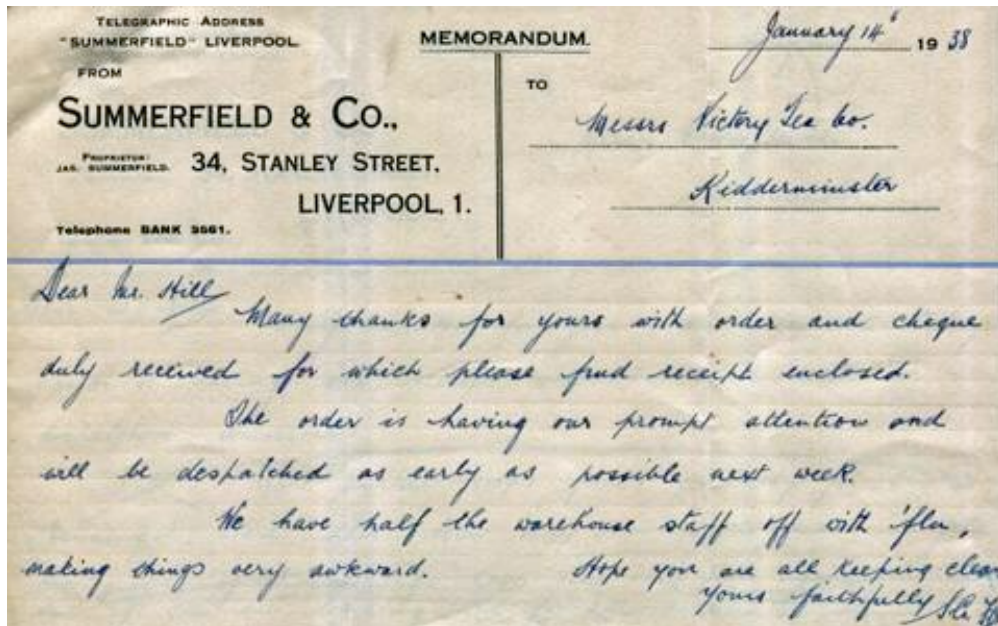 TELEGRAPHIC ADDRESS
"SUMMERFIELD" LIVERPOOL.
MEMORANDUM.
January 14th 1938
FROM
SUMMERFIELD & CO.,
PROPRIETOR:
JAS. SUMMERFIELD.
34, STANLEY STREET,
LIVERPOOL, 1.
Telephone BANK 3561.
TO
Messrs Victory Tea Co.
Kidderminster
Dear Mr. Hill
Many thanks for yours with order and cheque
duly received for which please find receipt enclosed.
The order is having our prompt attention and
will be despatched as early as possible next week.
We have half the warehouse staff off with 'flu,
making things very awkward. Hope you are all keeping clear
Yours faithfully